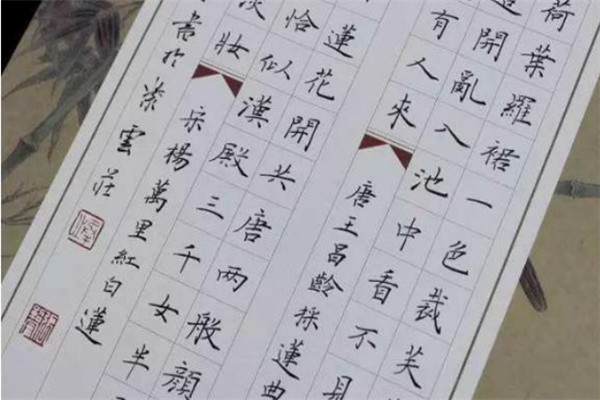 荷葉羅裙一色裁芙
開亂入池中看不見
有人來
唐王昌齡採蓮曲
蓮花開共唐两般顏
恰似漢殿三千女半
淡妝
宋楊萬里紅白蓮
書於
雲莊